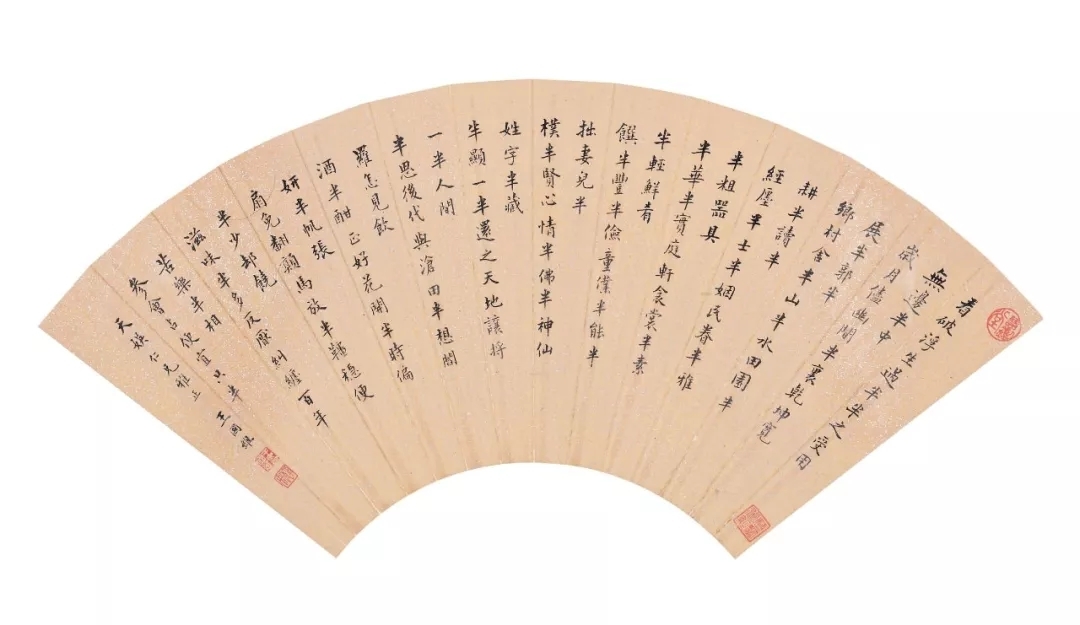 看破浮生過半半之受用
無邊半中
歲月儘幽閒半裏乾坤寬
展半郭半
鄉村舍半山半水田園半
耕半讀半
經廛半士半姻民眷半雅
半粗器具
半華半實庭軒衾裳半素
半輕鮮肴
饌半豐半儉童僕半能半
拙妻兒半
樸半賢心情半佛半神仙
姓字半藏
半顯一半還之天地讓將
一半人間
半思後代與滄田半想閻
羅怎見飲
酒半酣正好花開半時偏
妍半帆張
扇免翻顛馬放半韁穩便
半少却饒
滋味半多反厭糾纏百年
苦樂半相
參會占便宜只半
天仁兄雅正 王國維